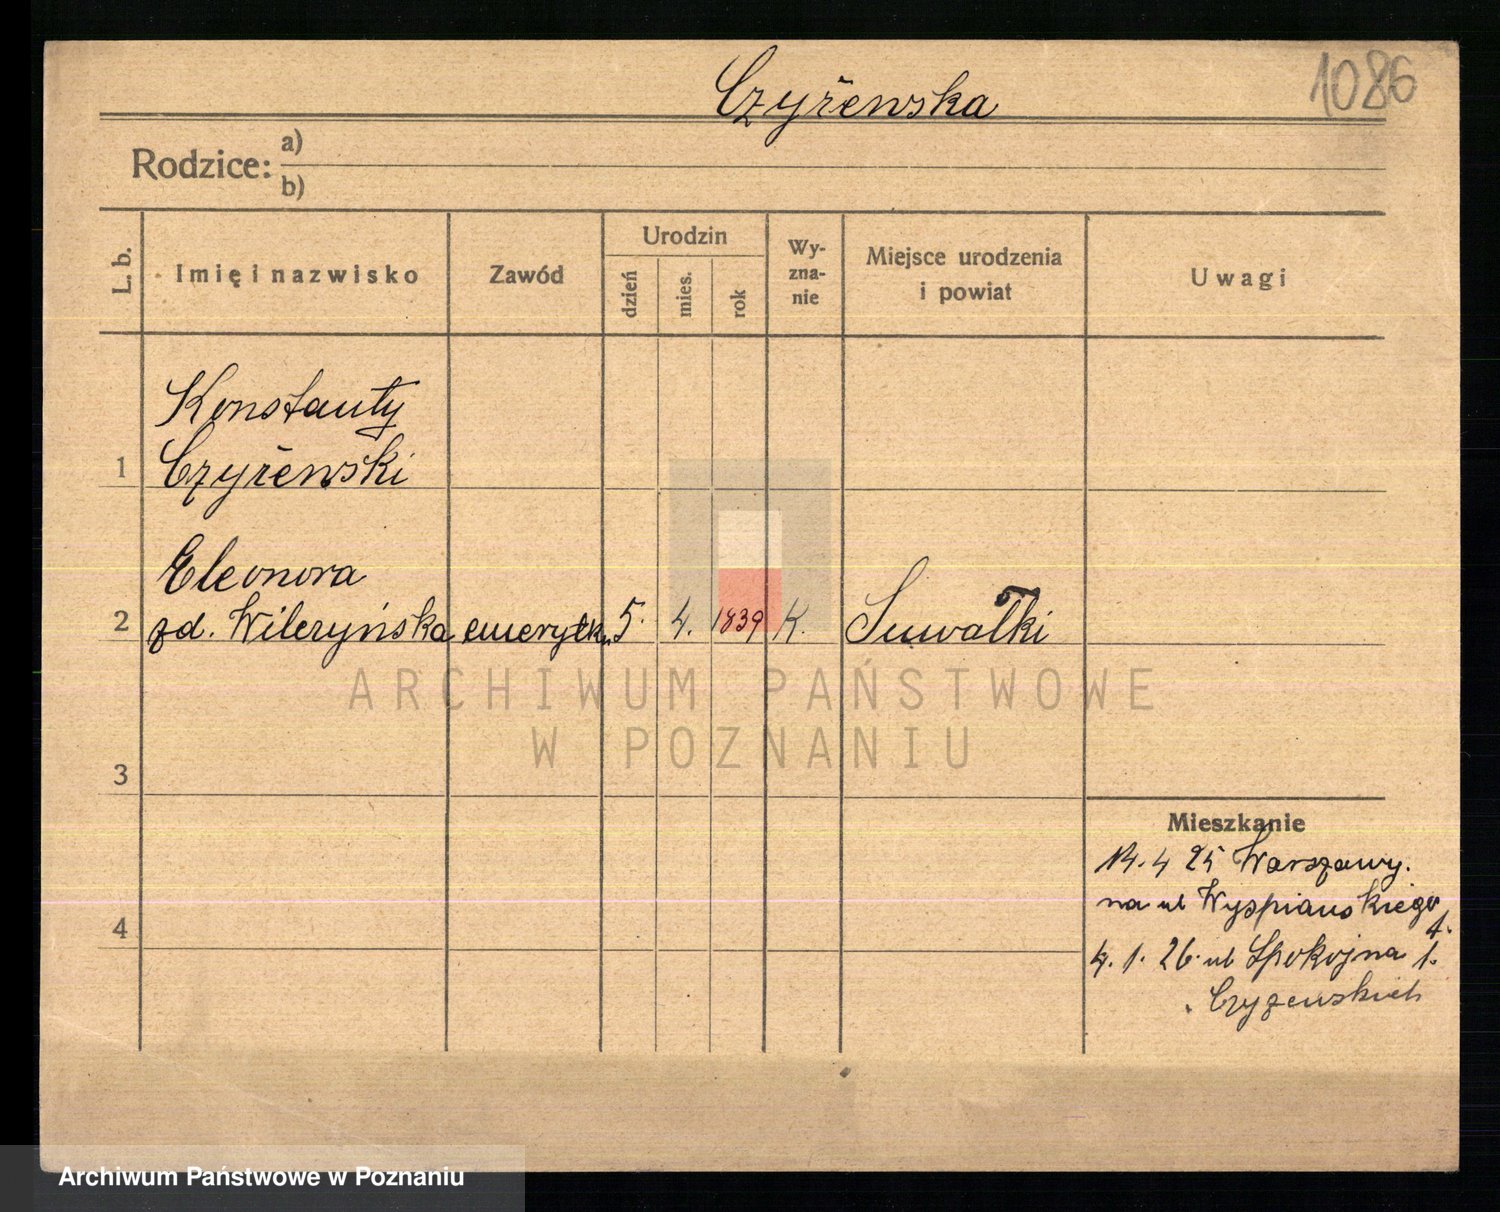 Czyżewska
1086
Rodzice: a)
b)
L. b.
Imię i nazwisko
Zawód
Urodzin
dzień
mies.
rok
Wy-
zna-
nie
Miejsce urodzenia
i powiat
Uwagi
Konstanty
1 Czyżewski
Eleonora
2 zd. Wilczyńska emerytk. 5. 4. 1839 K. Suwałki
ARCHIWUM PAŃSTWOWE
W POZNANIU
3
Mieszkanie
14. 4 25 Warszawy.
na ul Wyspiańskiego
4
4. 1. 26. ul Spokojna 1.
Czyżewskich
Archiwum Państwowe w Poznaniu